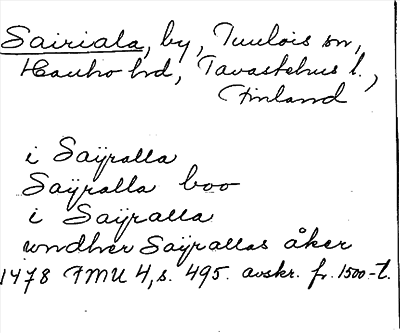 Sairiala, by, Tuulois sn,
Hauho hd, Tavastehus l.,
Finland
i Saÿralla
Saÿralla boo
i Saÿralla
wndher Saÿrallas åker
1478 FMU 4, s. 495. avskr. fr. 1500-t.